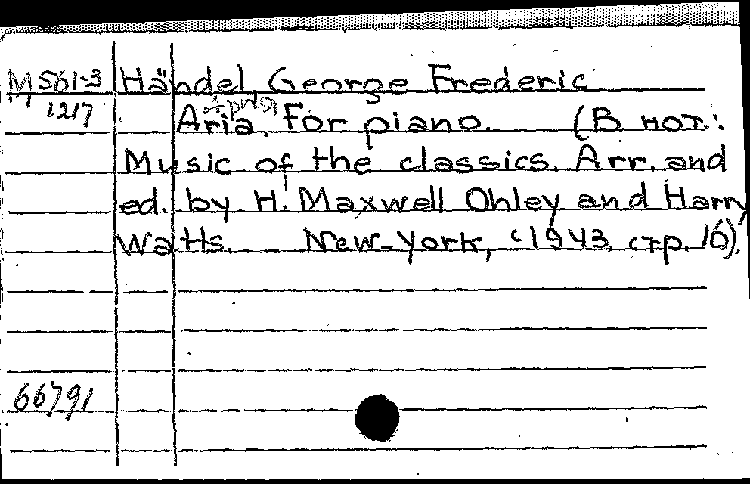 M 561-3 Händel, George Frederic
1217 Aria. For piano. (В нот:
Music of the classics. Arr. and
ed. by H. Maxwell Ohley and Harry
Watts. New-York, c1943, стр. 16).
66791